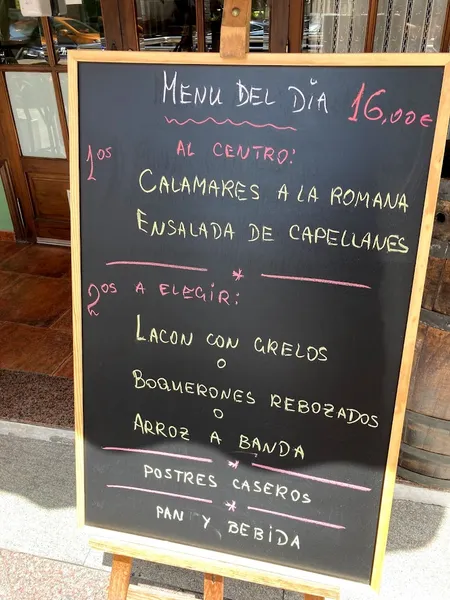 MENU DEL DÍA 16,00€
1os AL CENTRO:
CALAMARES A LA ROMANA
ENSALADA DE CAPELLANES
2os A ELEGIR:
LACON CON GRELOS
O
BOQUERONES REBOZADOS
O
ARROZ A BANDA
POSTRES CASEROS
PAN Y BEBIDA